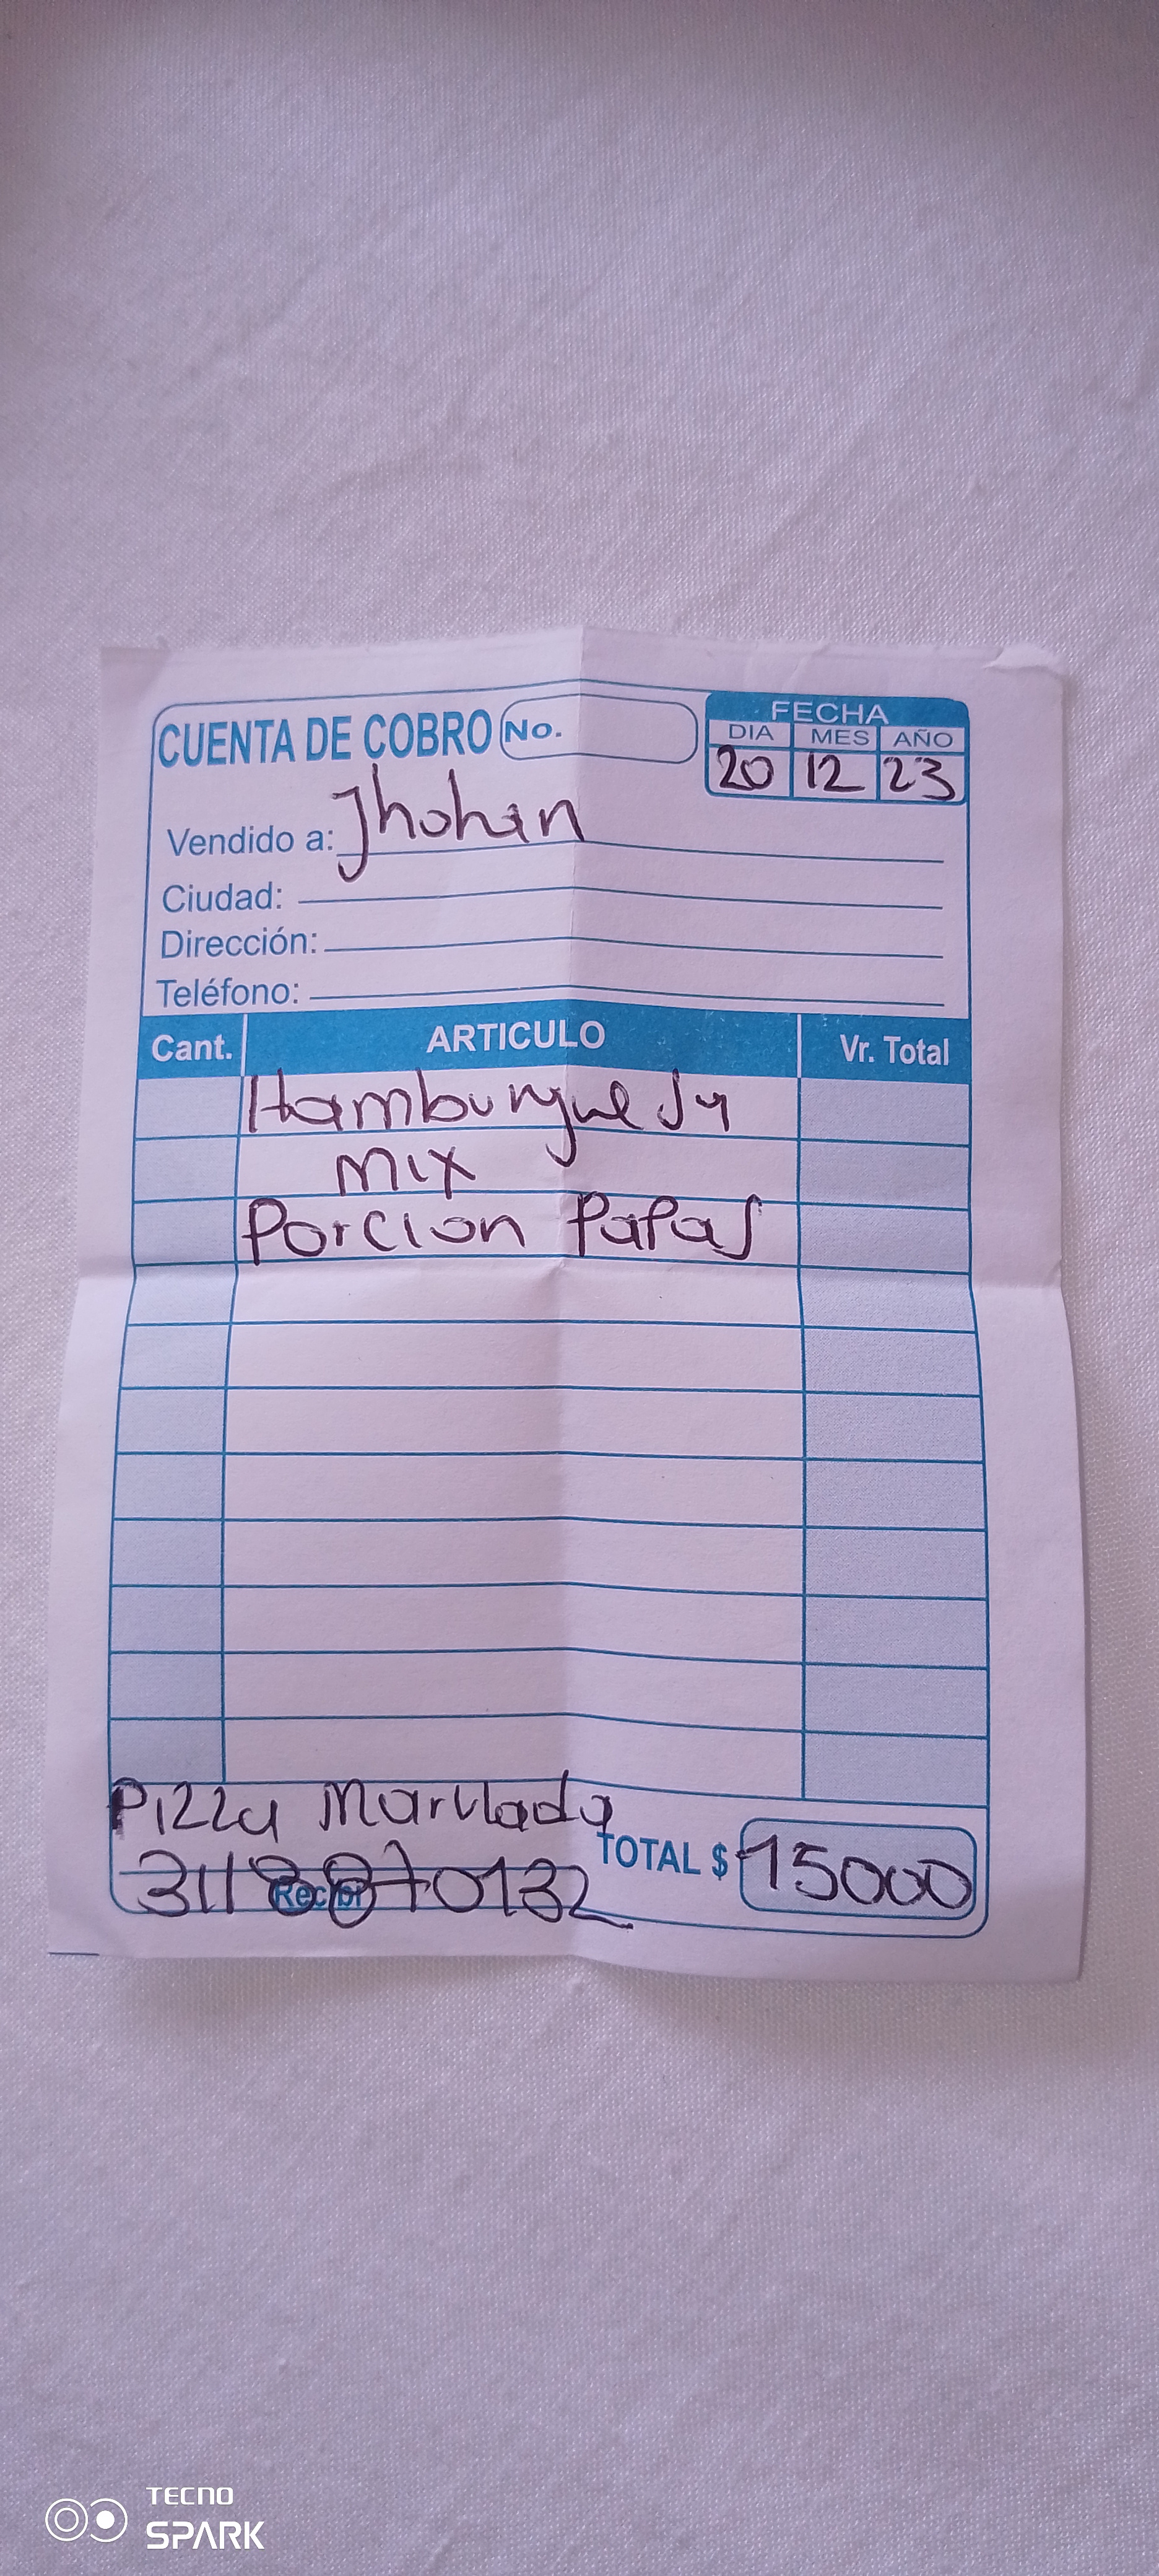 CUENTA DE COBRO No.
FECHA
DIA MES AÑO
20 12 23
Vendido a: Jhohan
Ciudad:
Dirección:
Teléfono:
Cant. ARTICULO Vr. Total
Hamburguesa
mix
Porcion Papas
Pizza Marvlada
TOTAL $ 15000
3118870132
Recibí
TECNO
SPARK